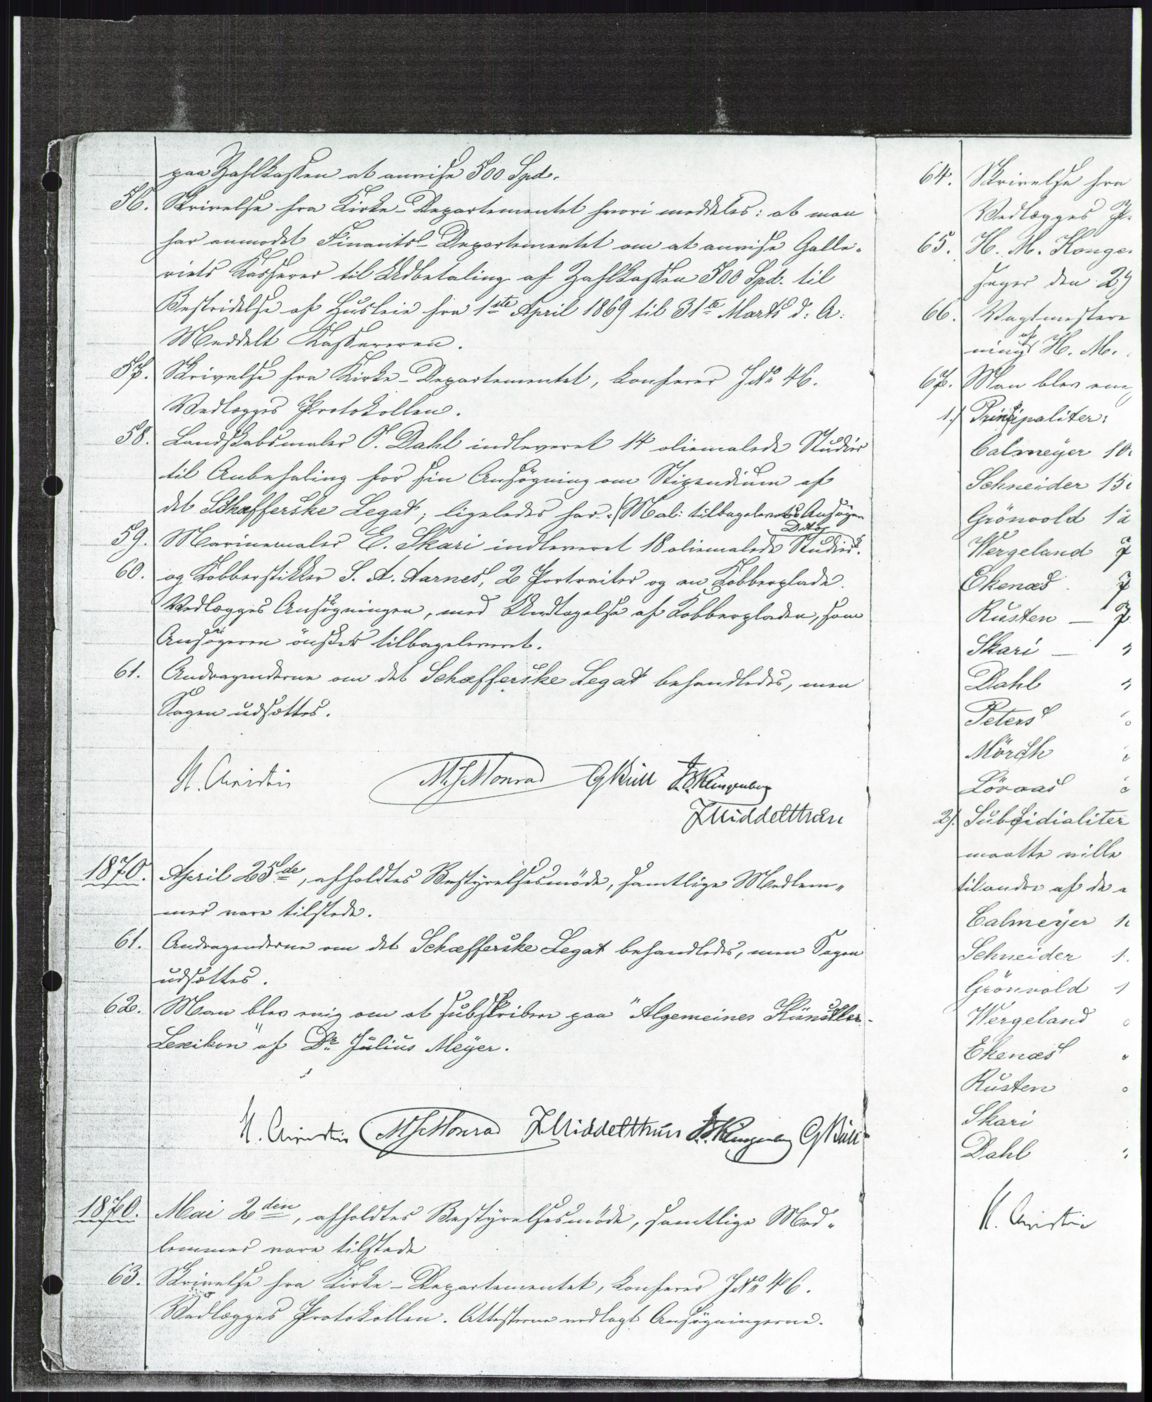 paa Zahlkassen at anvise 500 Spd.
56. Skrivelse fra Kirke-Departementet hvori meddeles: at man
har anmodet Finants-Departementet om at anvise Galle-
riets Kasserer til Udbetaling af Zahlkassen 500 Spd. til
Bestridelse af Husleie fra 1ste April 1869 til 31te Marts d: A:
Meddelt Kassereren.
57. Skrivelse fra Kirke-Departementet, conferer J.No 46.
Vedlægges Protokollen.
58. Landskabsmaler O. Dahl indleveret 14 oliemalede Studier
til Anbefaling for sin Ansøgning om Stipendium af
det Schæfferske Legat; ligeledes har
59. Marinemaler E. Skari indleveret 18 oliemalede Studier.
60. og Kobberstikker S. A. Aarnes, 2 Portraiter og en Kobberplade.
Vedlægges Ansøgningen, med Undtagelse af Kobberpladen, som
Ansøgeren ønsker tilbageleveret.
61. Andragenderne om det Schæfferske Legat behandledes, men
Sagen udsattes.
H. Christie M J Monrad G Bull Klingenberg
J Middelthun
1870. April 25de, afholdtes Bestyrelsesmøde, samtlige Medlem-
mer vare tilstede.
61. Andragenderne om det Schæfferske Legat behandledes, men Sagen
udsattes.
62. Man blev enig om at subskribere paa "Algemeines Künstler-
Lexikon" af Dr. Julius Meyer.
H. Christie M J Monrad J Middelthun Klingenberg G Bull
1870. Mai 2den, afholdtes Bestyrelsesmøde, samtlige Med-
lemmer vare tilstede
63. Skrivelse fra Kirke-Departementet, conferer J.No 46.
Vedlægges Protokollen. Attesterne vedlagt Ansøgningerne.
64. Skrivelse fra
Vedlægges
65. H. M. Konge
66. Vagtmestere
H. M.
67. Man blev
1.) Principaliter:
Calmeyer 10
Schneider 15
Grönvold
Wergeland
Ekenæs
Rusten
Skari
Dahl
Peters
Mörch
Lövaas
2). Subsidialiter
maatte ville
Calmeyer
Schneider
Grönvold
Wergeland
Ekenæs
Rusten
Skari
Dahl
H. Christie